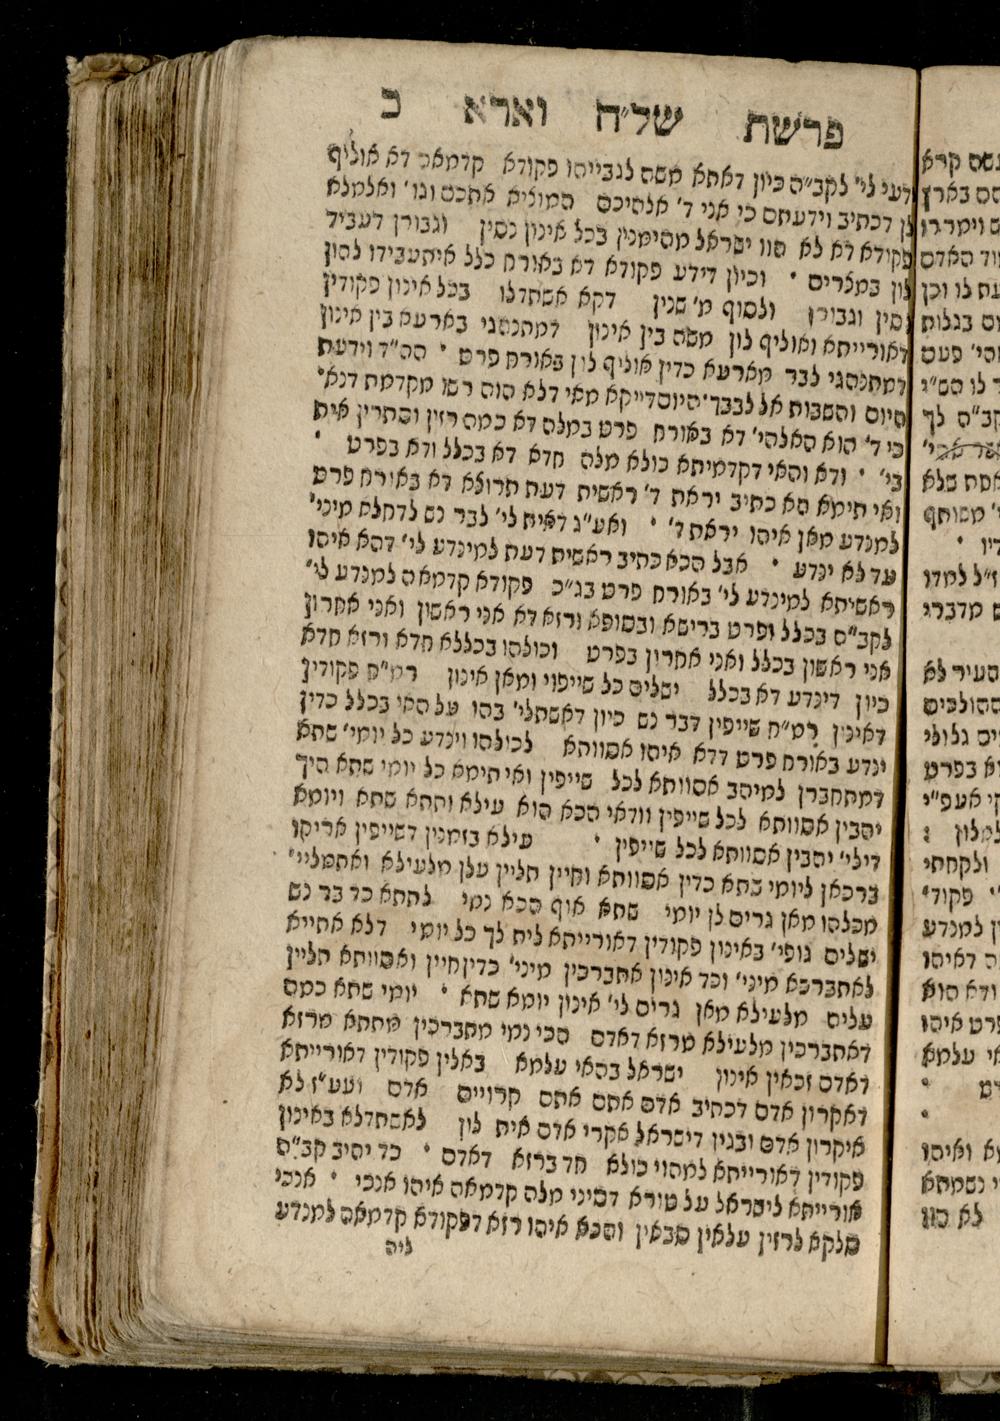 פרשת של״ח וארא כ
דעי לי׳ לקב״ה כיון דאתא משה לגבייהו פקודא קדמאה דא אוליף
לן דכתיב וידעתם כי אני ד׳ אלהיכם המוציא אתכם וגו׳ ואלמלא
פקודא דא לא הוו ישראל מהימנין בכל אינון נסין וגבורן דעביד
לון במצרים • וכיון דידע פקודא דא באורח כלל איתעבידו להון
נסין וגבורן ולסוף מ׳ שנין דקא אשתדלו בכל אינון פקודין
דאורייתא ואוליף לון משה בין אינון דמתנהגי בארעא בין אינון
דמתנהגי לבר מארעא כדין אוליף לון באורח פרט • הה״ד וידעת
היום והשבות אל לבבך היום דייקא מאי דלא הוה רשו מקדמת דנא
כי ד׳ הוא האלהי׳ דא באורח פרט במלה דא כמה רזין וסתרין אית
בי׳ • ודא והאי דקדמיתא כולא מלה חדא דא בכלל ודא בפרט •
ואי תימא הא כתיב יראת ד׳ ראשית דעת תרוצא דא באורח פרט
למנדע מאן איהו יראת ד׳ • ואע״ג דאית לי׳ לבר נש לדחלא מיני׳
עד לא ינדע • אבל הכא כתיב ראשית דעת למינדע לי׳ דהא איהו
ראשיתא למינדע לי׳ באורח פרט בג״כ פקודא קדמאה למנדע לי׳
לקב״ה בכלל ופרט ברישא ובסופא ורזא דא אני ראשון ואני אחרון
אני ראשון בכלל ואני אחרון בפרט וכולהו בכללא חדא ורזא חדא
כיון דינדע דא בכלל ישלים כל שייפוי ומאן אינון רמ״ח פקודין
דאינון רמ״ח שייפין דבר נש כיון דאשתלי׳ בהו על האי בכלל כדין
ינדע באורח פרט דדא איהו אסוותא לכולהו וינדע כל יומי׳ שתא
דמתחברן למיהב אסוותא לכל שייפין ואי תימא כל יומי שתא היך
יהבין אסוותא לכל שייפין וודאי הכא הוא עילא ותתא שתא ויומא
דילי׳ יהבין אסוותא לכל שייפין • עילא בזמנין דשייפין אריהו
ברכאן ליומי שתא כדין אסוותא וחיין תליין עלן מלעילא ואתמליי׳
מכלהו מאן גרים לן יומי שתא אוף הכא נמי לתתא כד בר נש
ישלים גופי׳ באינון פקודין דאורייתא לית לך כל יומי דלא אתייא
לאתברכא מיני׳ וכד אינון אתברכין מיני׳ כדין חיין ואסוותא תליין
עלים מלעילא מאן גרים לי׳ אינון יומא שתא • יומי שתא כמה
דאתברכין מלעילא מרזא דאדם הכי נמי מתברכין מתתא מרזא
דאדם זכאין אינון ישראל בהאי עלמא באלין פקודין דאורייתא
דאקרון אדם דכתיב אדם אתם אתם קרויים אדם ועע״ז לא
איקרון אדם ובגין דישראל אקרי אדם אית לון לאשתדלא באינון
פקודין דאורייתא למהוי כולא חד ברזא דאדם • כד יהיב קב״ה
אורייתא לישראל על טורא דסיני מלה קדמאה איהו אנכי • אנכי
סלקא לרזין עלאין סגאין והכא איהו רזא דפקודא קדמאה למנדע
ליה